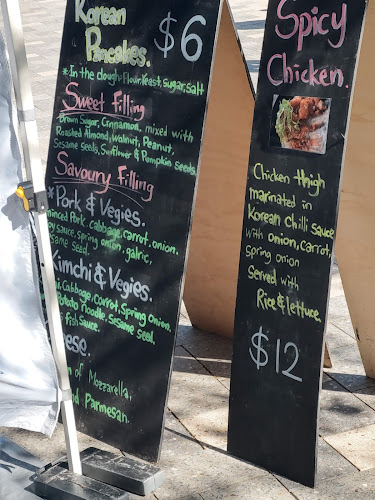 Korean
Pancakes.
$6
*In the dough: Flour, Yeast, Sugar, Salt
Sweet Filling
Brown Sugar, Cinnamon, mixed with
Roasted Almond, Walnut, Peanut,
Sesame Seeds, Sunflower & Pumpkin seeds
Savoury Filling
*Pork & Vegies.
minced Pork, cabbage, carrot, onion.
sauce, spring onion, galric,
same seed.
Kimchi & Vegies.
Cabbage, carrot, Spring onion.
Potato noodle, Sesame seed.
fish Sauce.
of Mozzarella,
nd Parmesan.
Spicy
Chicken.
Chicken Thigh
marinated in
Korean Chilli Sauce
with onion, carrot,
spring onion
Served with
Rice & lettuce.
$12